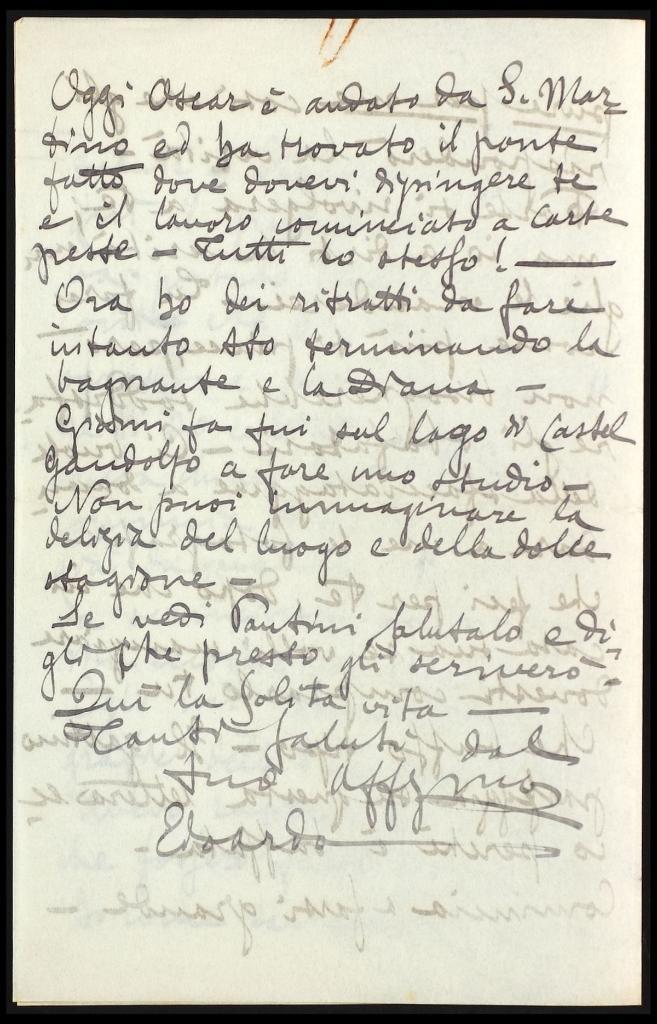 Oggi Oscar è andato da S. Mar
tino ed ha trovato il ponte
fatto dove dovevi dipingere te
e il lavoro cominciato a carte
peste – Tutti lo stesso! —
Ora ho dei ritratti da fare
intanto sto terminando la
bagnante e la Diana –
Giorni fa fui sul lago di Castel
Gandolfo a fare uno studio –
Non puoi immaginare la
delizia del luogo e della dolce
stagione –
Se vedi Fantini salutalo e di
gli che presto gli scriverò –
Qui la solita vita —
Tanti saluti dal
tuo affzmo
Edoardo